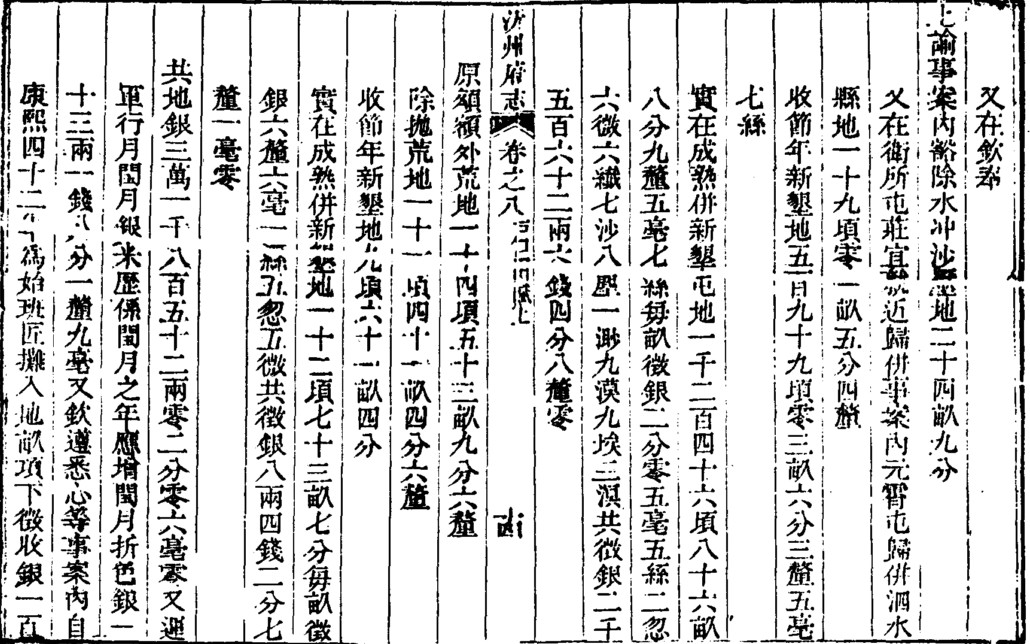 又在欽奉
上諭事案內豁除水冲沙壓地二十四畝九分
又在衛所屯莊宜就近歸併事案內元霄屯歸併泗水
縣地一十九頃零一畝五分四釐
收節年新墾地五百九十九頃零三畝六分三釐五毫
七絲
實在成熟併新墾屯地一千二百四十六頃八十六畝
八分九釐五毫七絲每畝徵銀二分零五毫五絲二忽
六微六纖七沙八塵一渺九漠九埃二溟共徵銀二千
五百六十二兩六錢四分八釐零
沂州府志 卷之八
原額額外荒地一十四頃五十三畝九分六釐
除拋荒地一十一頃四十一畝四分六釐
收節年新墾地九頃六十一畝四分
實在成熟併新墾地一十二頃七十三畝七分每畝徵
銀六釐六毫一絲五忽五微共徵銀八兩四錢二分七
釐一毫零
共地銀三萬一千八百五十二兩零二分零六毫零又運
軍行月閏月銀米歷係閏月之年應增閏月折色銀一
十三兩一錢八分一釐九毫又欽遵悉心等事案內自
康熙四十二年為始班匠攤入地畝項下徵收銀一百